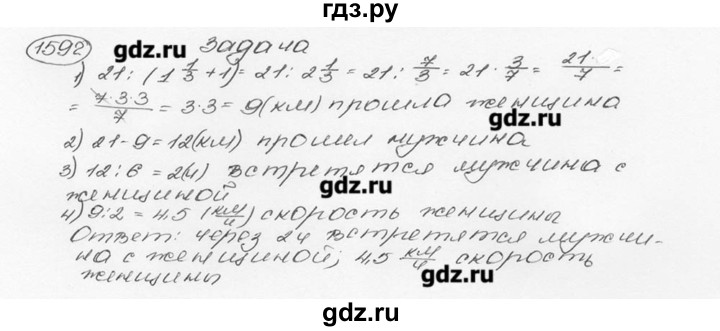 гдз.ру
1592 гдз.ру Задача
1) 21 : (1 1/3 + 1) = 21 : 2 1/3 = 21 : 7/3 = 21 · 3/7 = 21·/7 =
= 7·3·3/7 = 3·3 = 9(км) прошла женщина
гдз.ру
2) 21-9=12(км) прошел мужчина
3) 12:6=2(ч) встретятся мужчина с
гдз.ру
женщиной
4) 9:2=4,5 (км/ч) скорость женщины
Ответ: через 2ч встретятся мужчи-
на с женщиной; 4,5 км/ч скорость
гдз.ру
женщины
гдз.ру